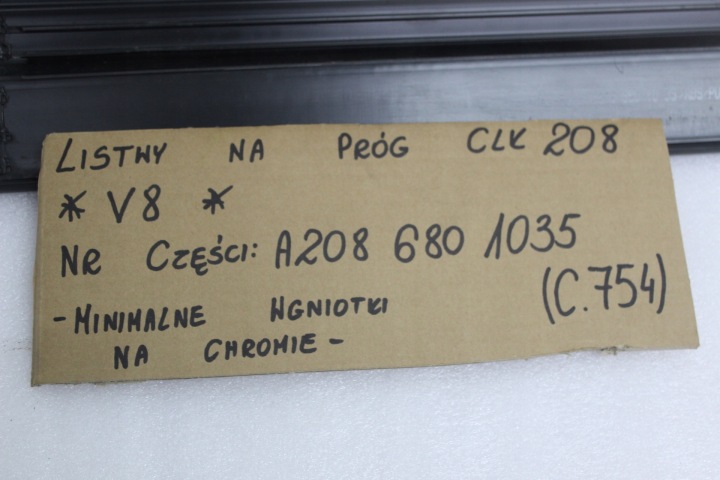 LISTWY NA PRÓG CLK 208
* V8 *
NR CZĘŚCI: A208 680 1035
(C.754)
-MINIMALNE WGNIOTKI
NA CHROMIE-